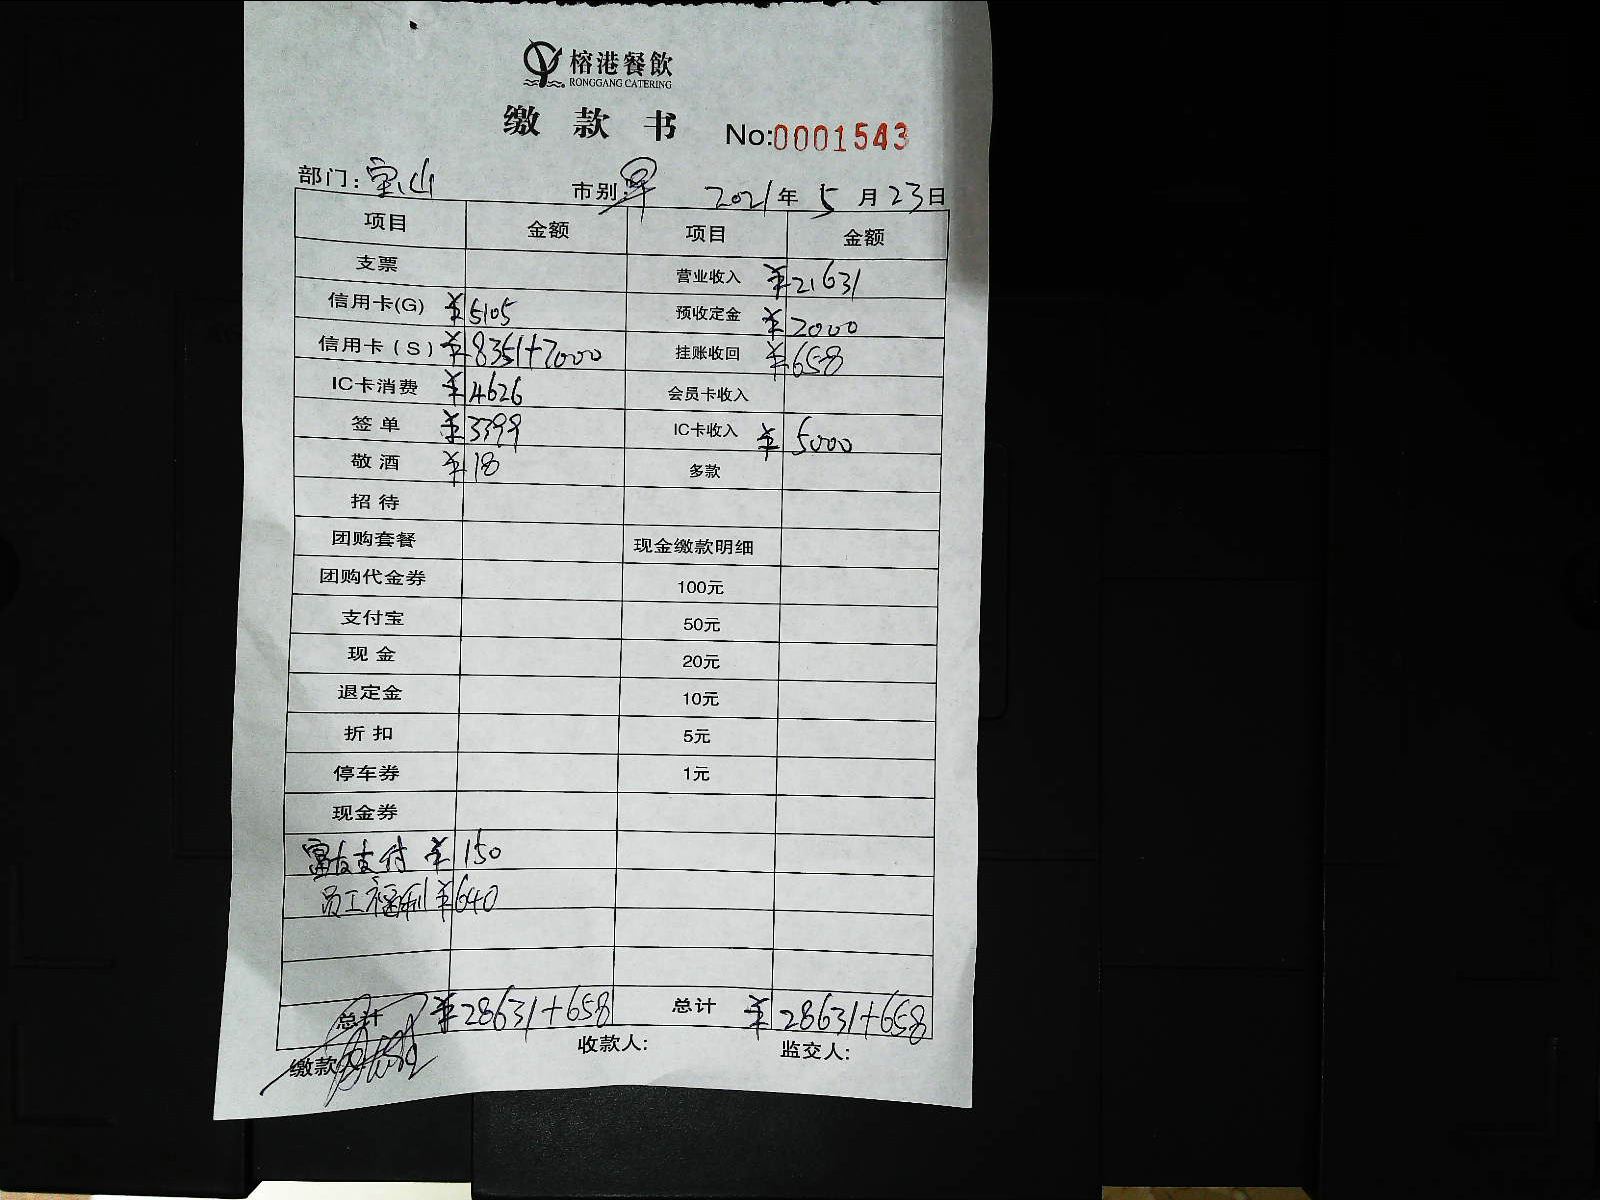 榕港餐飲
RONGGANG CATERING
缴款书
No:0001543
部门:宝山 市别:早 2021年5月23日
项目 金额 项目 金额
支票 营业收入 ¥21631
信用卡(G) ¥5105 预收定金 ¥2000
信用卡(S) ¥8351+7000 挂账收回 ¥658
IC卡消费 ¥4626 会员卡收入
签单 ¥3399 IC卡收入 ¥5000
敬酒 ¥18 多款
招待
团购套餐 现金缴款明细
团购代金券 100元
支付宝 50元
现金 20元
退定金 10元
折扣 5元
停车券 1元
现金券
富友支付 ¥150
员工福利 ¥640
总计 ¥28631+658 总计 ¥28631+658
缴款 收款人: 监交人: